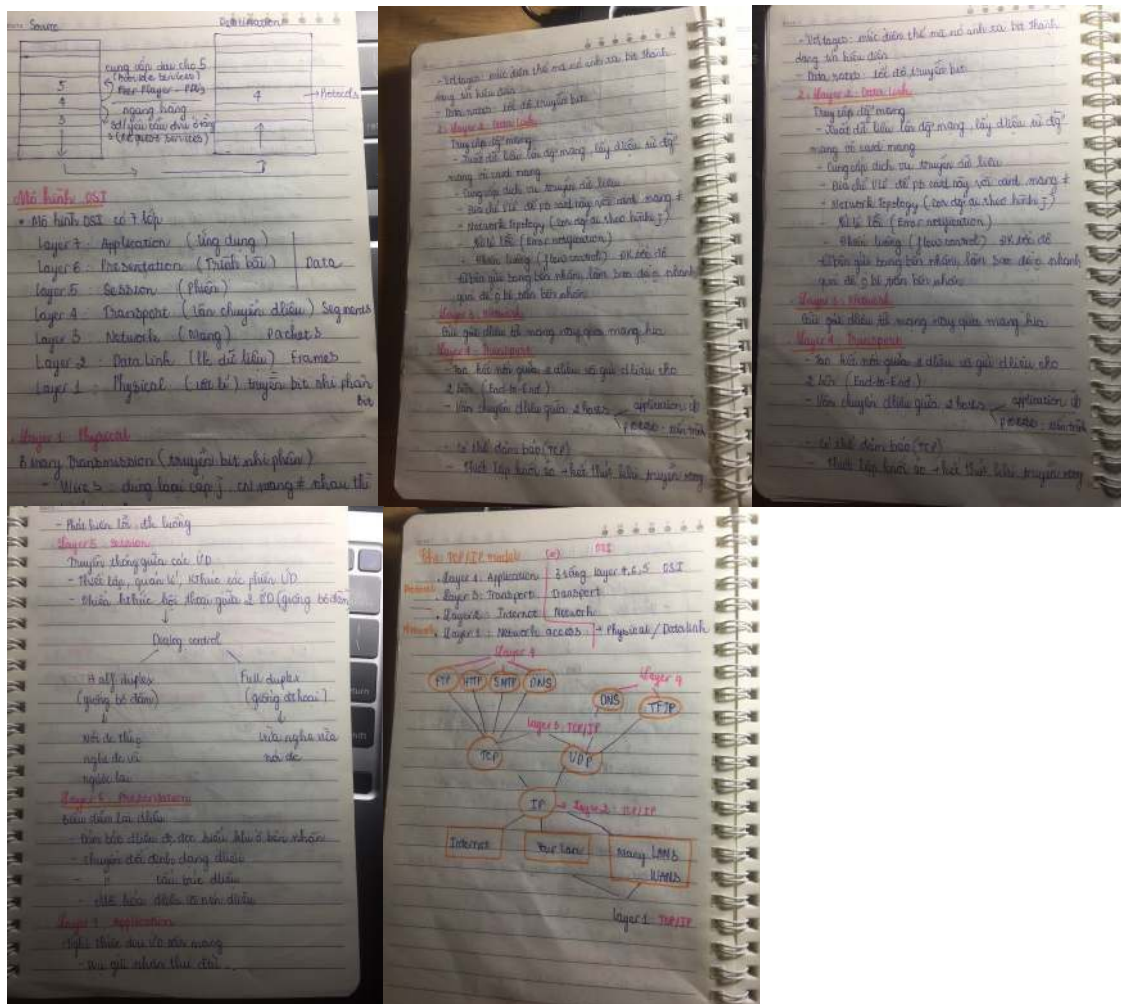 Source
Destination
cung cấp data cho 5
(Provide services)
Peer-Player-PDUs
ngang hàng
(Request services)
5
4
3
4
Protocols
Mô hình OSI
• Mô hình OSI có 7 lớp
Layer 7: Application (ứng dụng)
Layer 6: Presentation (Trình bài)
Data
Layer 5: Session (Phiên)
Layer 4: Transport (Vận chuyển dliệu) Segments
Layer 3: Network (Mạng) Packets
Layer 2: Data Link (lk dữ liệu) Frames
Layer 1: Physical (vật lí) truyền bit nhị phân
Bit
Layer 1: Physical
Binary Transmission (truyền bit nhị phân)
- Wires: dùng loại cáp j, mạng ≠ nhau thì
- Voltages: mức điện thế mà nó ánh xạ bit thành
dạng tín hiệu điện
- Data rates: tốc độ truyền bit
2. Layer 2: Data Link
Truy cập mạng
- Xuất dữ liệu lên mạng, lấy dliệu từ
mạng về card mạng
- Cung cấp dịch vụ truyền dữ liệu
- Địa chỉ VLí để pb card này với card mạng ≠
- Network Topology (theo hình j)
- Xử lí lỗi (Error notification)
- Phân luồng (flow control) ĐK tốc độ
từ bên gửi sang bên nhận, làm sao để nhanh
quá để bên nhận
Layer 3: Network
Gửi dliệu từ mạng này qua mạng kia
Layer 4: Transport
- Tạo kết nối giữa 2 và gửi dliệu cho
2 bên (End-to-End)
- Vận chuyển dliệu giữa 2 hosts
application
process
- Có thể đảm bảo (TCP)
- Thiết lập khởi tạo + kết thúc khi truyền xong
- Voltages: mức điện thế mà nó ánh xạ bit thành
dạng tín hiệu điện
- Data rates: tốc độ truyền bit
2. Layer 2: Data Link
Truy cập mạng
- Xuất dữ liệu lên mạng, lấy dliệu từ
mạng về card mạng
- Cung cấp dịch vụ truyền dữ liệu
- Địa chỉ VLí để pb card này với card mạng ≠
- Network Topology (theo hình j)
- Xử lí lỗi (Error notification)
- Phân luồng (flow control) ĐK tốc độ
từ bên gửi sang bên nhận, làm sao để nhanh
quá để bên nhận
Layer 3: Network
Gửi dliệu từ mạng này qua mạng kia
Layer 4: Transport
- Tạo kết nối giữa 2 và gửi dliệu cho
2 bên (End-to-End)
- Vận chuyển dliệu giữa 2 hosts
application
process
- Có thể đảm bảo (TCP)
- Thiết lập khởi tạo + kết thúc khi truyền xong
- Phát hiện lỗi, đk luồng
Layer 5: Session
Truyền thông giữa các ƯD
- Thiết lập, quản lí, kthúc các phiên ƯD
- Phiên kthúc hội thoại giữa 2 ƯD (giống bộ đàm
Dialog control
Half duplex
Full duplex
(giống bộ đàm)
(giống đthoại)
Nói đc thì
vừa nghe vừa
nghe đc và
nói đc
ngược lại
Layer 6: Presentation
Biểu diễn lại dliệu
- Đảm bảo dliệu đc đọc hiểu ở bên nhận
- Chuyển đổi định dạng dliệu
- " cấu trúc dliệu
- Mã hóa dliệu và nén dliệu
Layer 7: Application
Nghi thức cho ƯD trên mạng
- Vdụ gửi nhận thư ĐTử
TCP/IP model
OSI
Layer 4: Application
3 tầng layer 7,6,5 OSI
Layer 3: Transport
Transport
Layer 2: Internet
Network
Layer 1: Network access
→ Physical / Datalink
Layer 4
FTP
HTTP
SMTP
DNS
Layer 4
DNS
TFTP
Layer 3 TCP/IP
TCP
UDP
IP → Layer 2 TCP/IP
Internet
Your Lan
Many LANS
WANS
Layer 1 TCP/IP